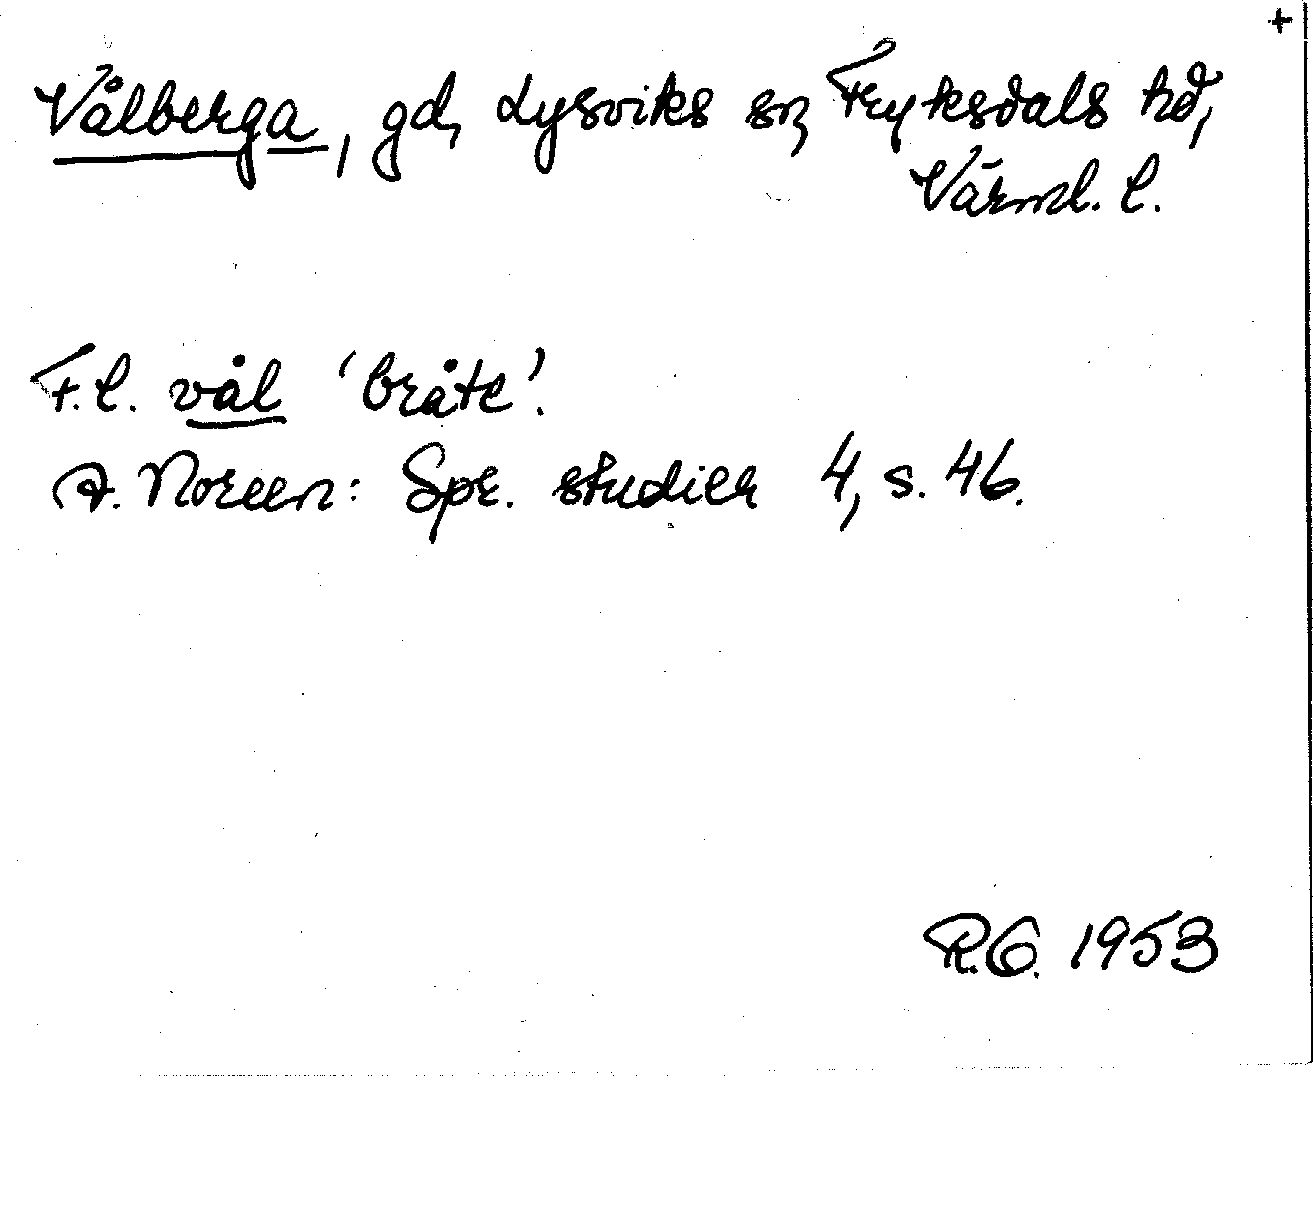 +
Vålberga, gd, Lysviks sn, Fryksdals hd,
Värml. l.
F.l. vål 'bråte'.
A. Noreen: Spr. studier 4, s. 46.
R.G. 1953